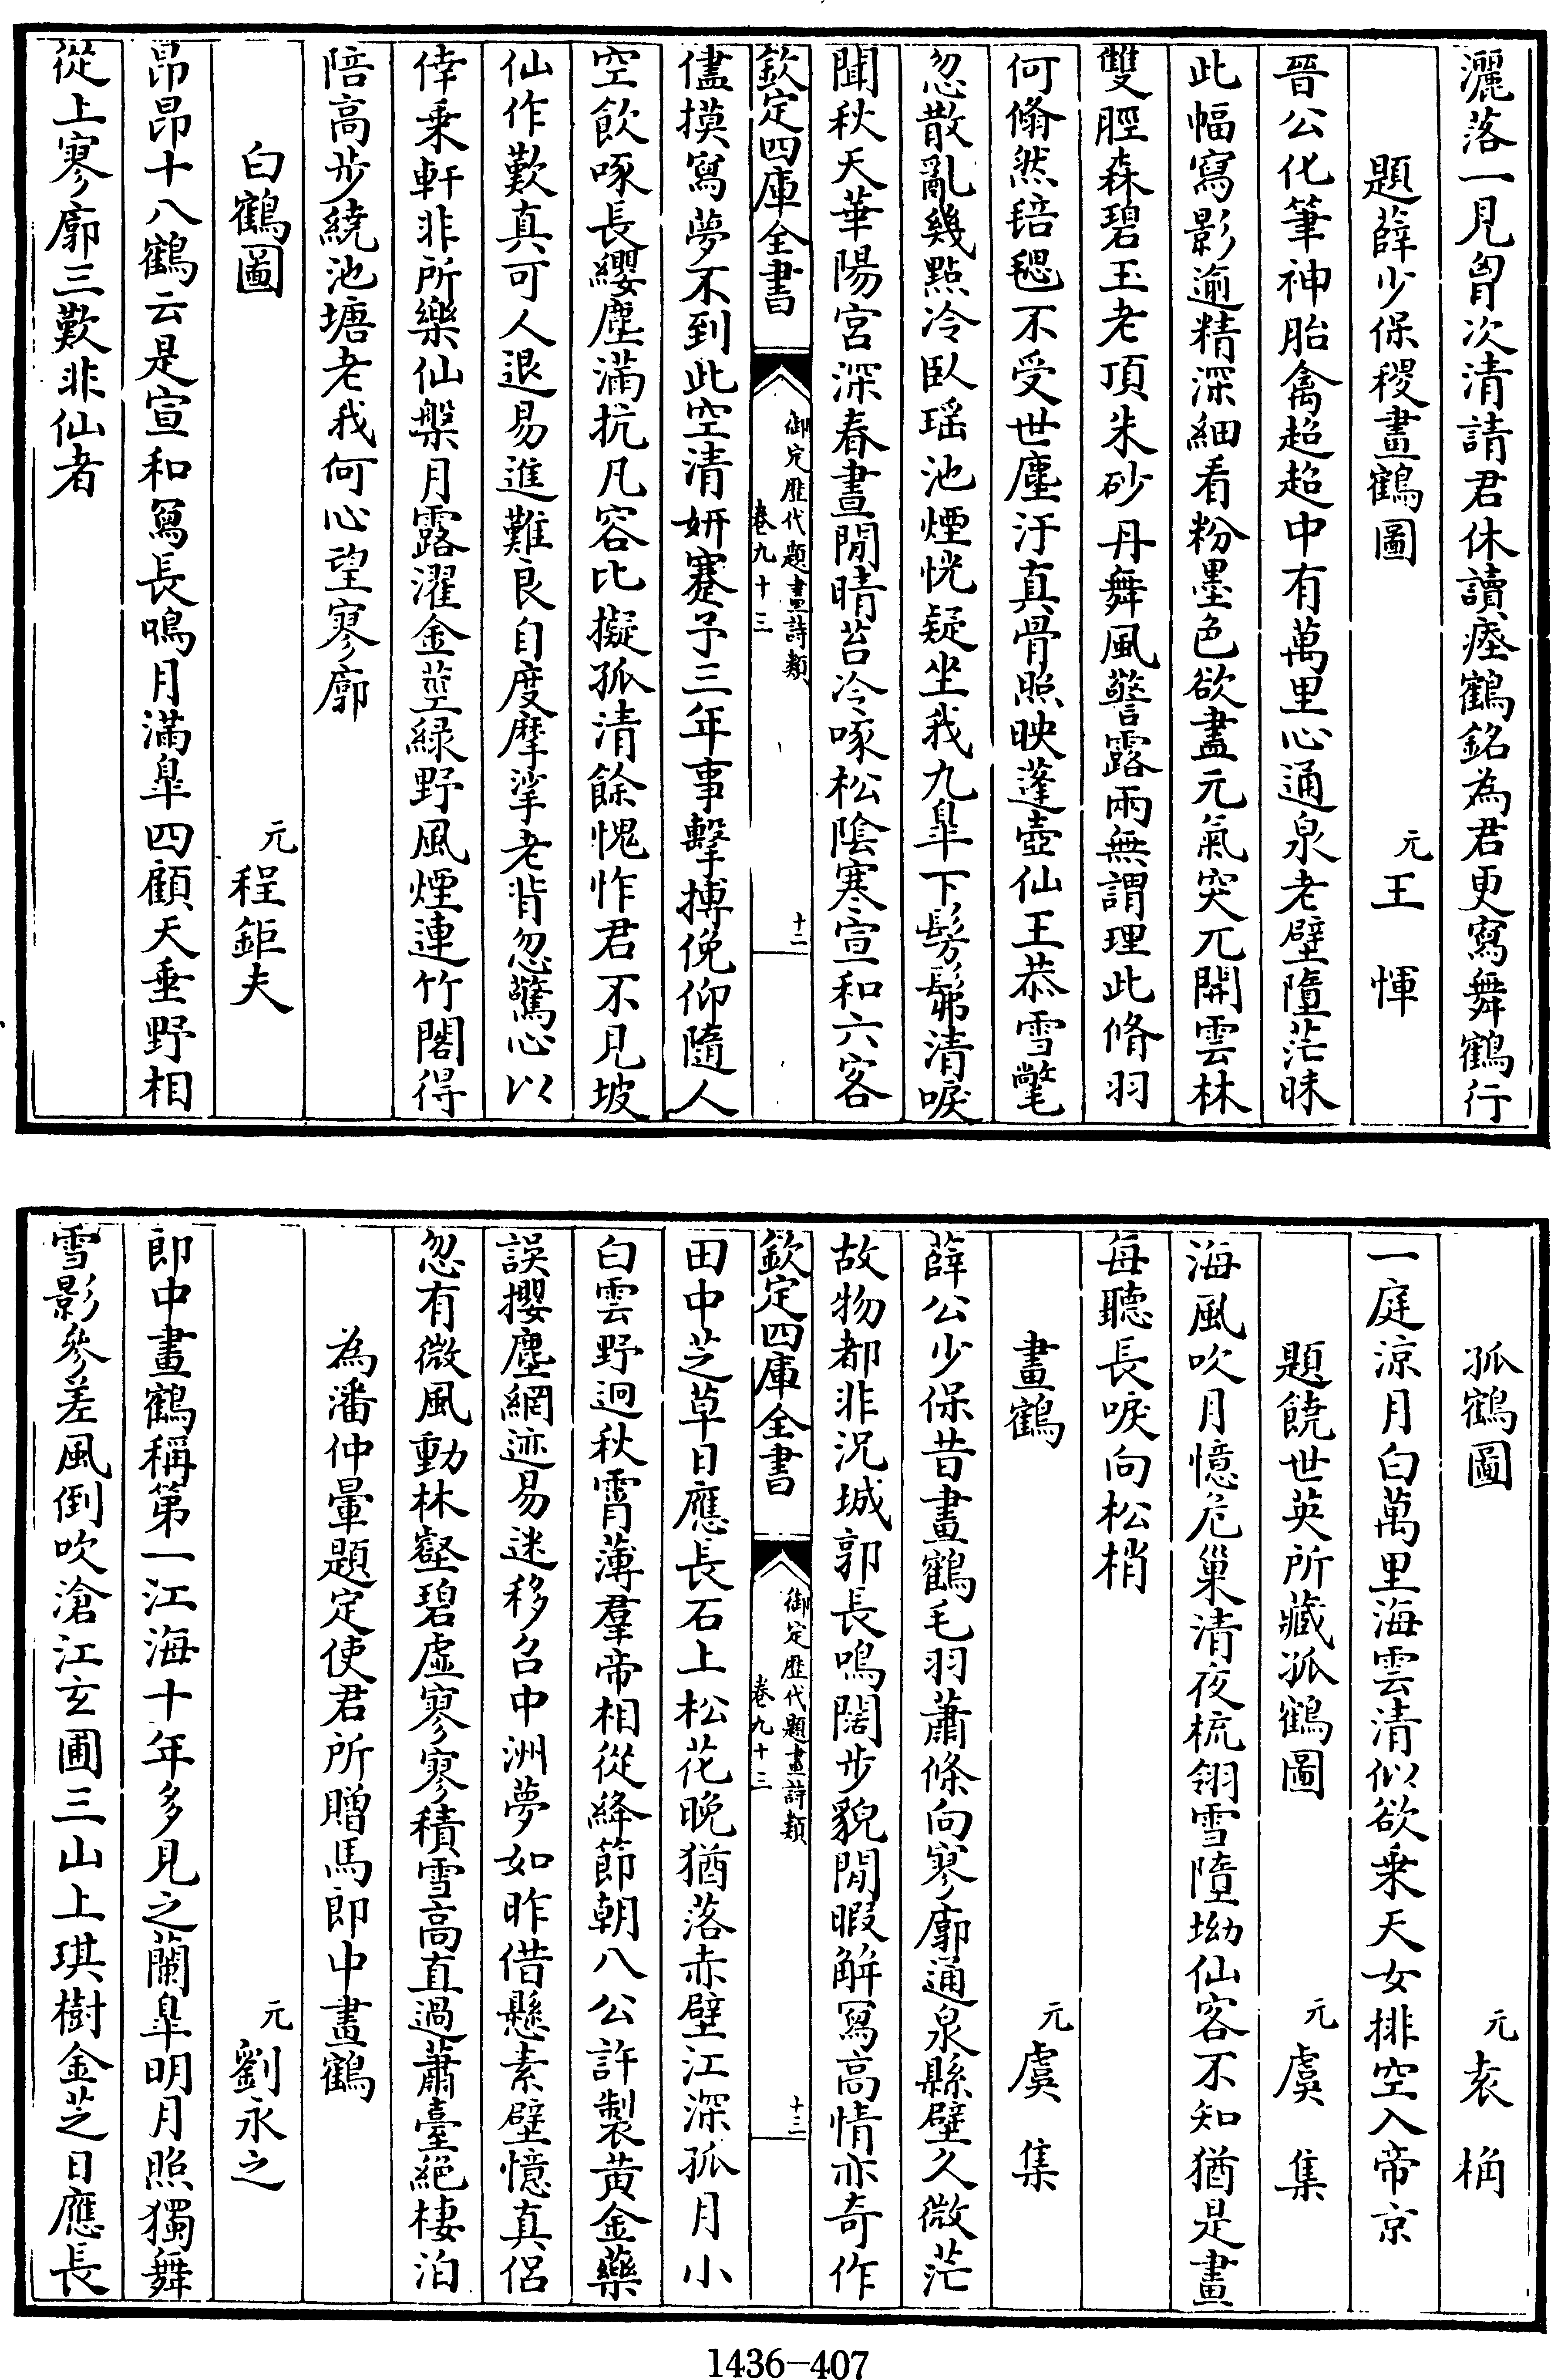 灑落一見胷次清請君休讀瘞鶴銘為君更寫舞鶴行
題薛少保稷畫鶴圖
元王惲
晉公化筆神胎禽超超中有萬里心通泉老壁墮茫昧
此幅寫影逾精深細看粉墨色欲盡元氣突兀開雲林
雙脛森碧玉老頂朱砂丹舞風警露兩無謂理此脩羽
何翛然毰毸不受世塵汙真骨照映蓬壺仙王恭雪氅
忽散亂幾點冷臥瑶池煙恍疑坐我九臯下髣髴清唳
聞秋天華陽宮深春晝閒晴苔冷啄松陰寒宣和六客
欽定四庫全書
御定歷代題畫詩類
卷九十三
十二
儘摸寫夢不到此空清妍蹇予三年事擊搏俛仰隨人
空飲啄長纓塵滿抗凡容比擬孤清餘愧怍君不見坡
仙作歎真可人退易進難良自度摩挲老背忽驚心以
倖乗軒非所樂仙槃月露濯金莖緑野風煙連竹閣得
陪高步繞池塘老我何心望寥廓
白鶴圖
元程鉅夫
昂昂十八鶴云是宣和冩長鳴月滿臯四顧天垂野相
從上寥廓三歎非仙者
孤鶴圖
元袁桷
一庭涼月白萬里海雲清似欲乗天女排空入帝京
題饒世英所藏孤鶴圖
元虞集
海風吹月憶危巢清夜梳翎雪墮坳仙客不知猶是畫
每聽長唳向松梢
畫鶴
元虞集
薛公少保昔畫鶴毛羽蕭條向寥廓通泉縣壁久微茫
故物都非況城郭長鳴闊步貌閒暇解冩高情亦奇作
欽定四庫全書
御定歷代題畫詩類
卷九十三
十三
田中芝草日應長石上松花晚猶落赤壁江深孤月小
白雲野迥秋霄薄羣帝相從絳節朝八公許製黃金藥
誤攖塵網迹易迷移召中洲夢如昨借懸素壁憶真侶
忽有微風動林壑碧虛寥寥積雪高直過蕭臺絕棲泊
為潘仲暈題定使君所贈馬郎中畫鶴
元劉永之
郎中畫鶴稱第一江海十年多見之蘭臯明月照獨舞
雪影參差風倒吹滄江玄圃三山上琪樹金芝日應長
1436-407